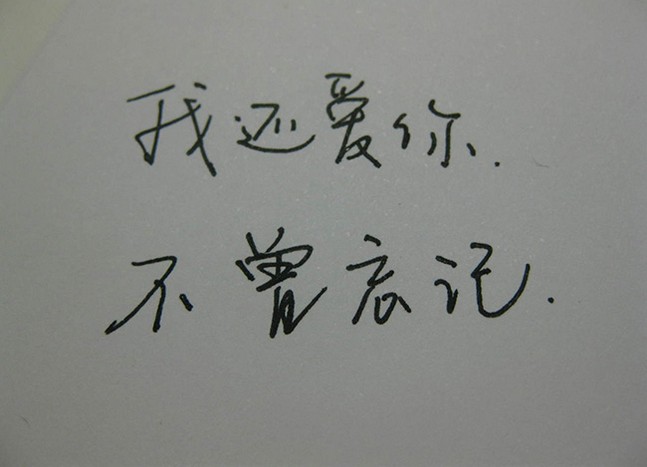 我还爱你.
不曾忘记.